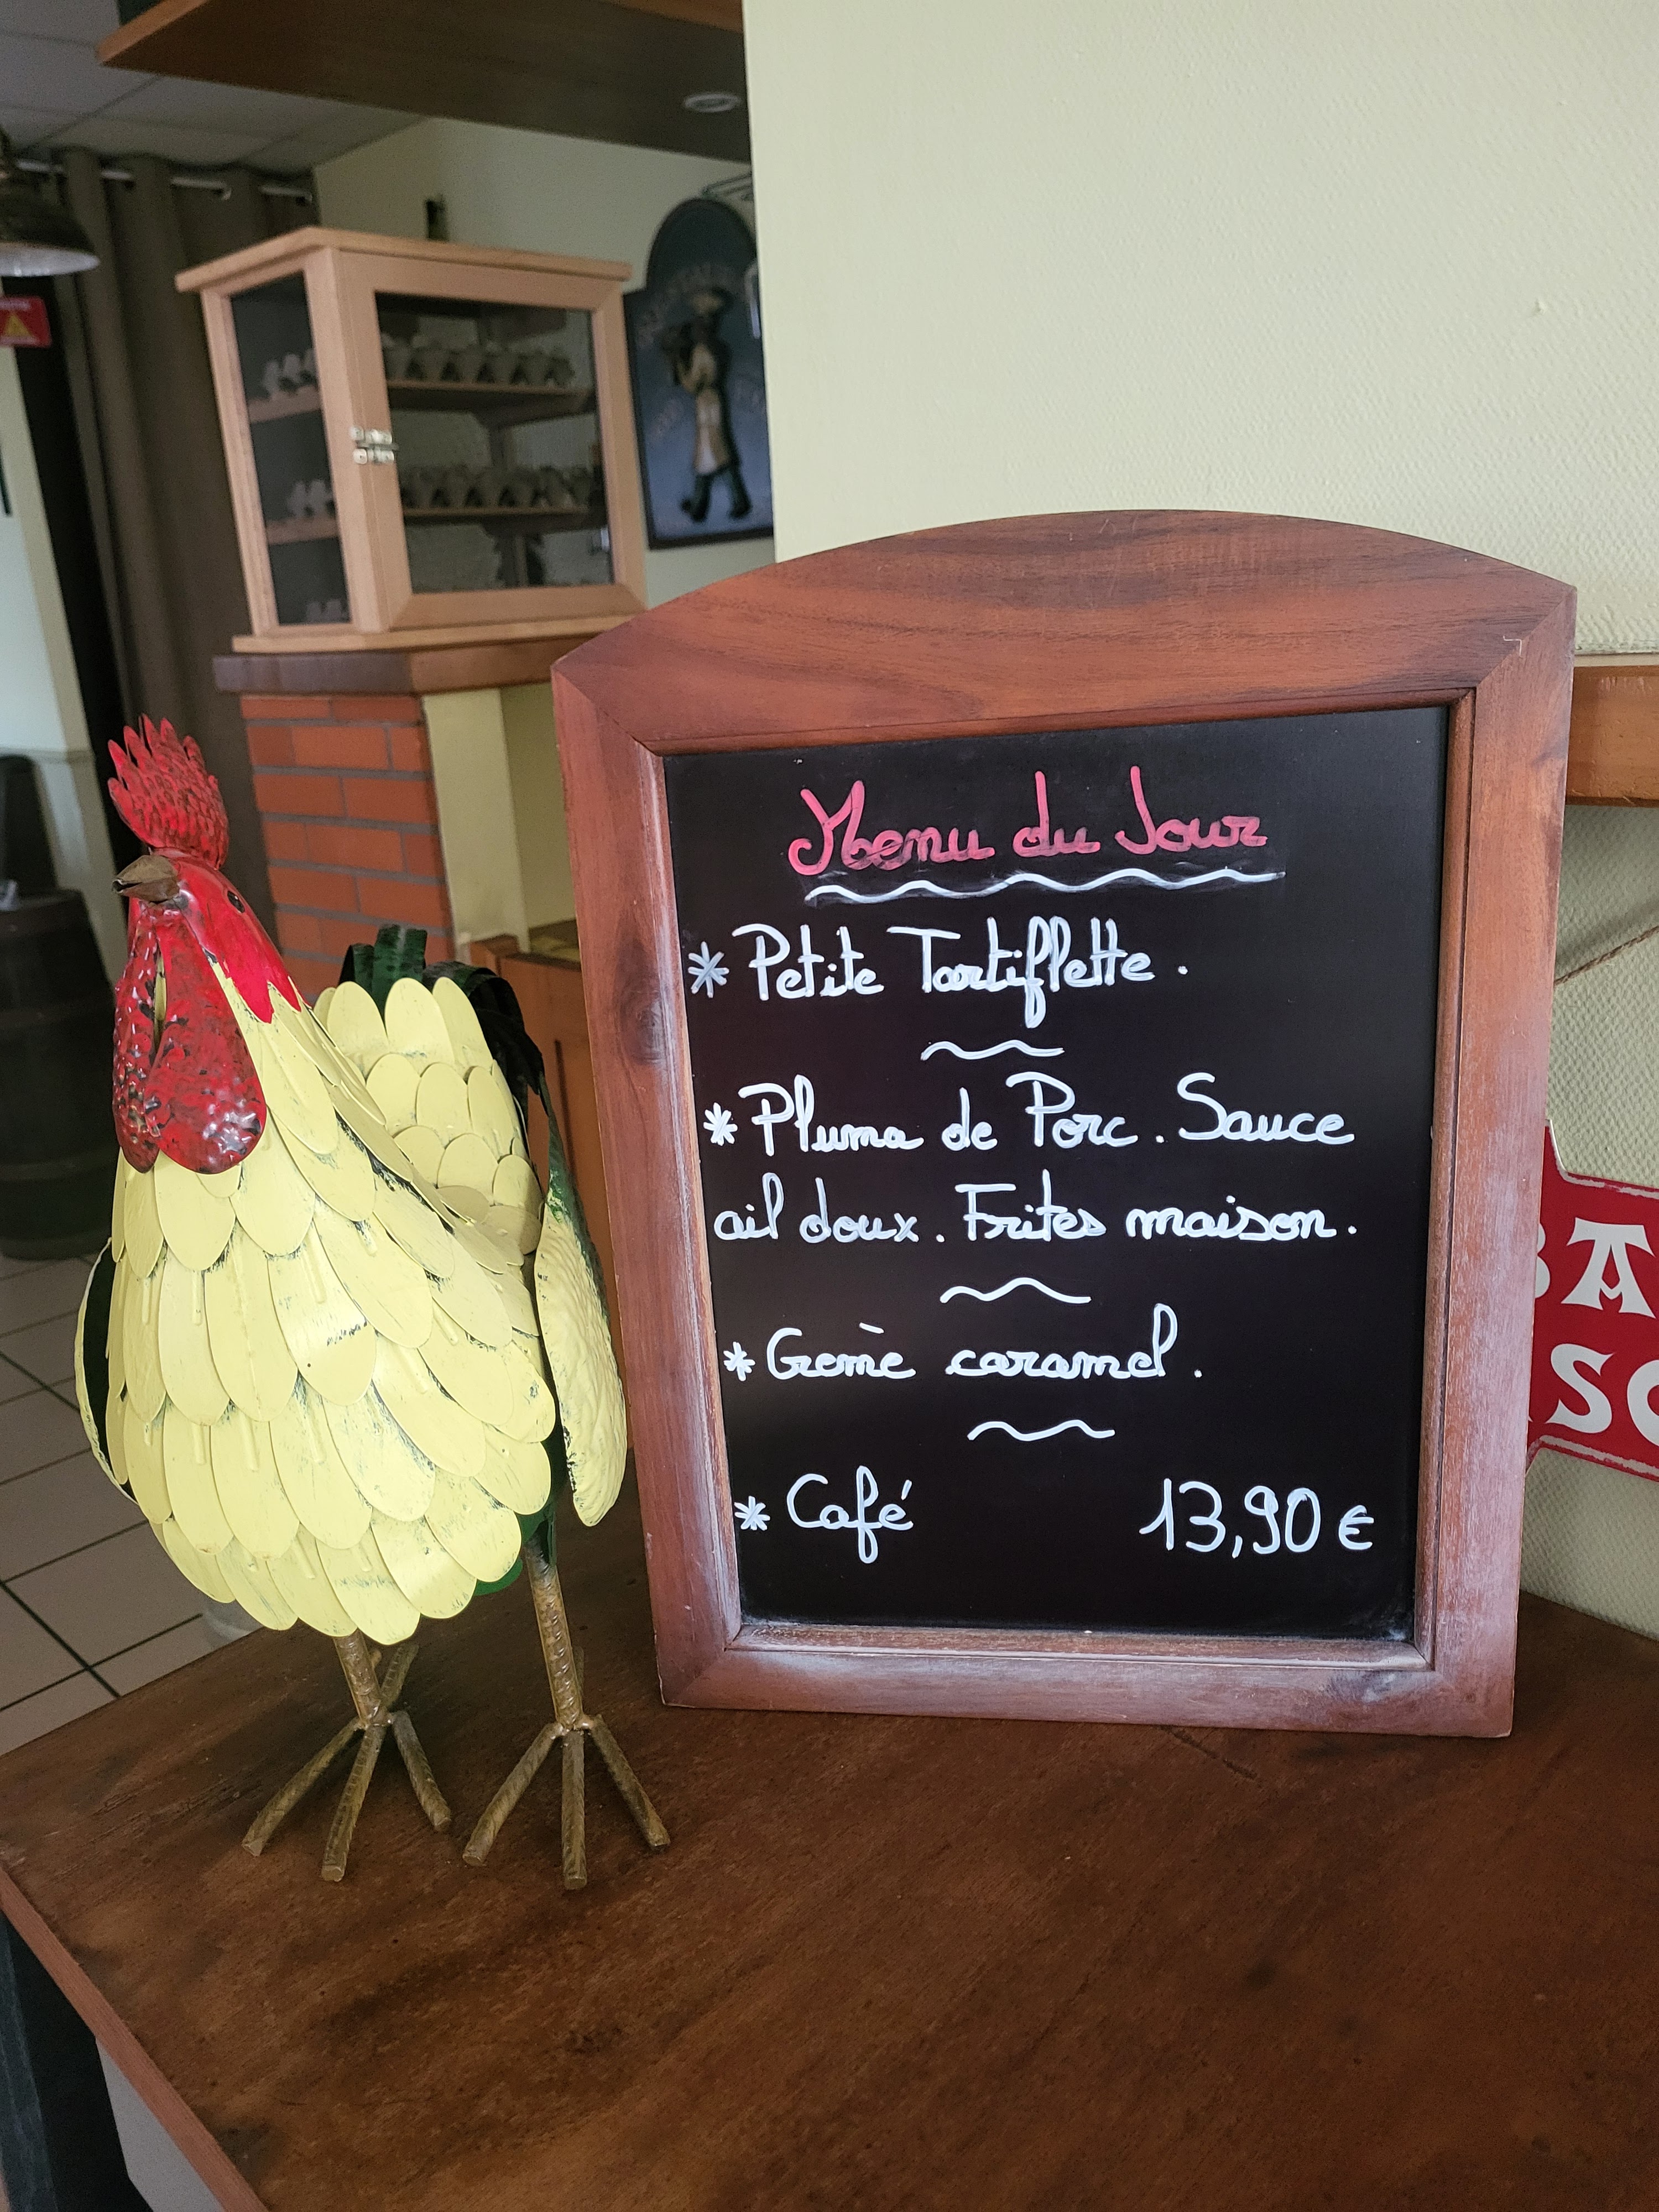 Menu du Jour
* Petite Tartiflette.
* Pluma de Porc. Sauce
ail doux. Frites maison.
* Crème caramel.
* Café 13,90 €
BA
SO